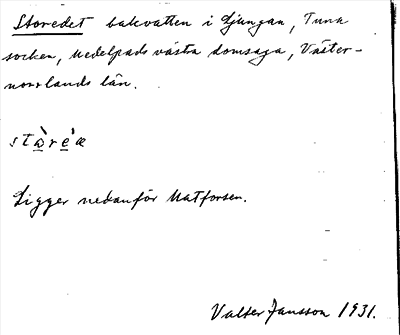 Storedet bakvatten i Ljungan, Tuna
socken, Medelpads västra domsaga, Väster-
norrlands län.
Ligger nedanför Matforsen.
Valter Jansson 1931.